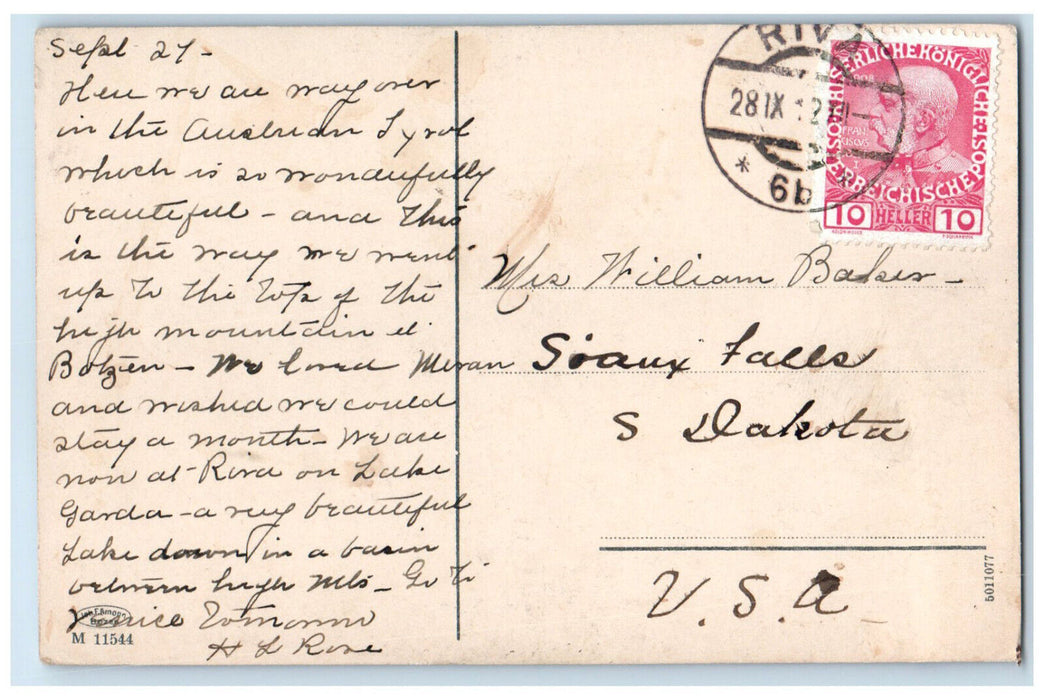 Sept 27-
Here we are way over
in the Austrian Tyrol
which is so wonderfully
beautiful - and this
is the way we went
up to the top of the
high mountain at
Botzen - We loved Meran
and wished we could
stay a month - We are
now at Riva on Lake
Garda - a very beautiful
Lake down in a basin
between high Mts - Go to
Venice Tomorrow
H L Rose
M 11544
RIVA
28 IX 12
* 6b *
KAISERLICHE KÖNIGLICHE
ÖSTERREICHISCHE POST
1908
10 HELLER 10
Mrs William Baker -
Sioux Falls
S Dakota
U.S.A
5011077